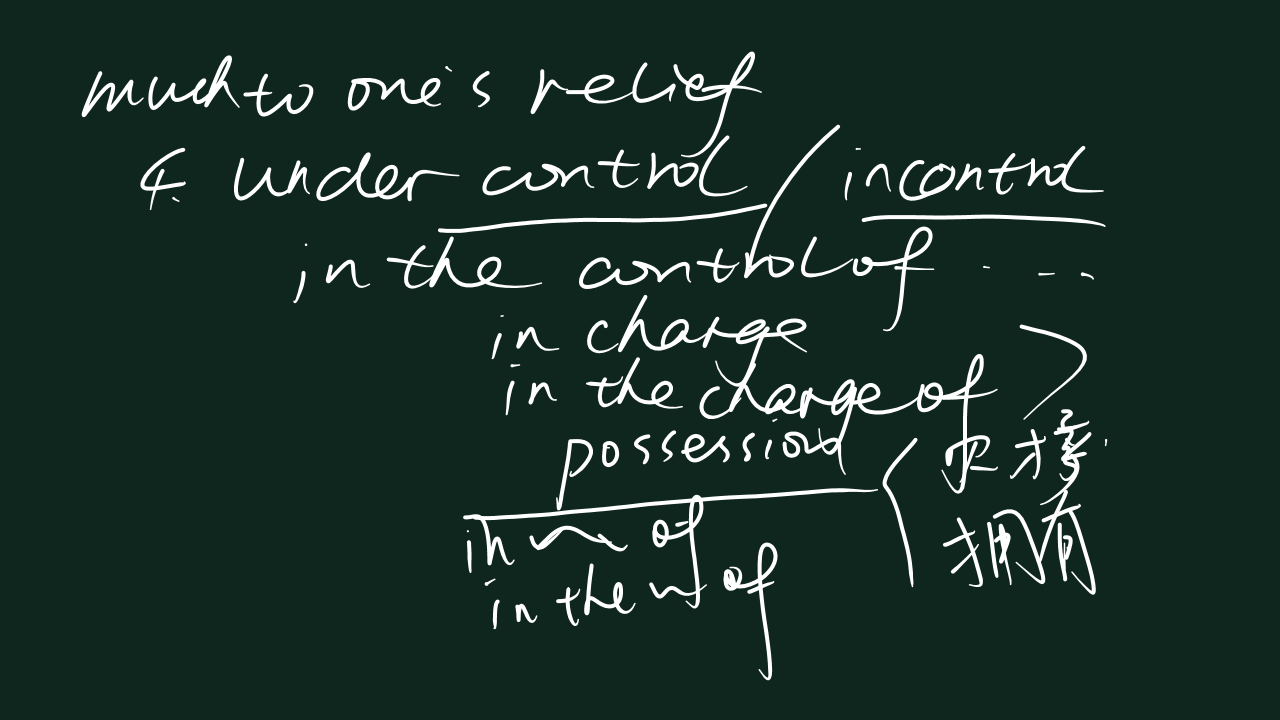 much to one's relief
4. under control / in control
in the control of ...
in charge
in the charge of
possession
in ~ of
in the ~ of
拥有